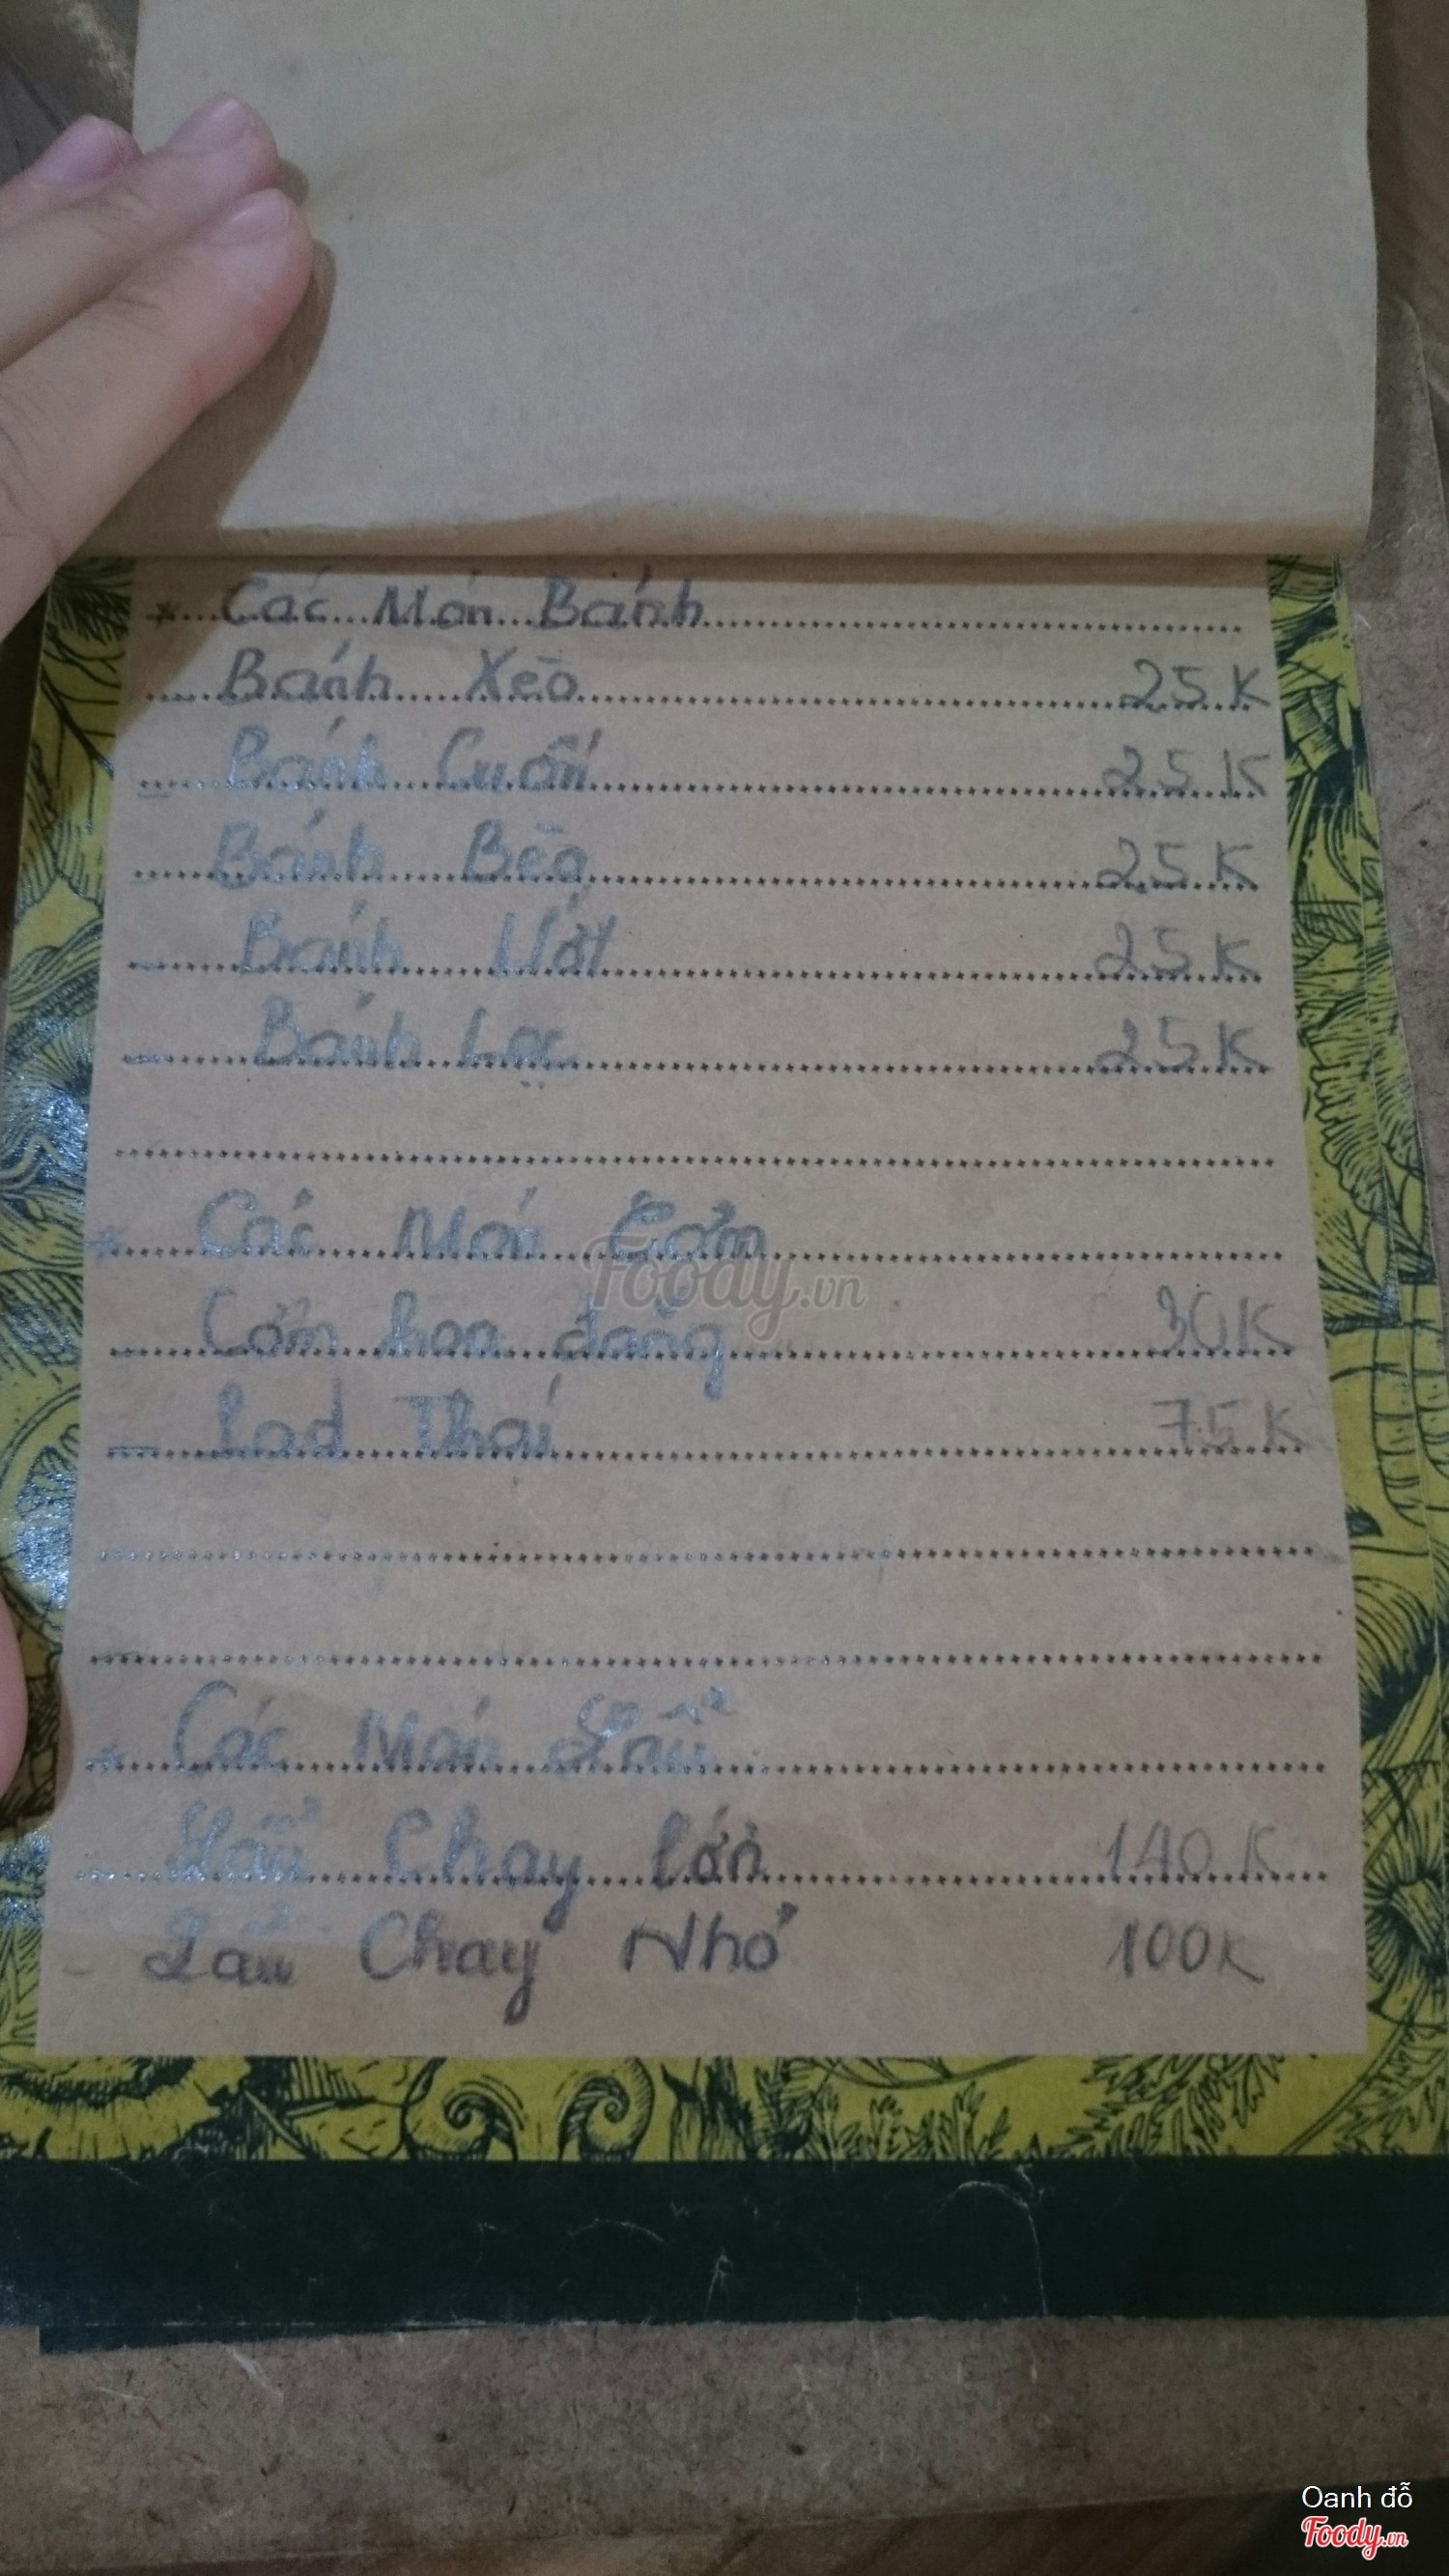 * Các Món Bánh
- Bánh Xèo 25K
- Bánh Cuốn 25K
Bánh Bèo 25K
- Bánh Ướt 25K
- Bánh Lọc 25K
* Các Món Cơm
Foody.vn
- Cơm hoa đăng 30K
- Lad Thái 75K
* Các Món Lẩu
Lẩu Chay lớn 140K
- Lẩu Chay Nhỏ 100K
Oanh đỗ
Foody.vn